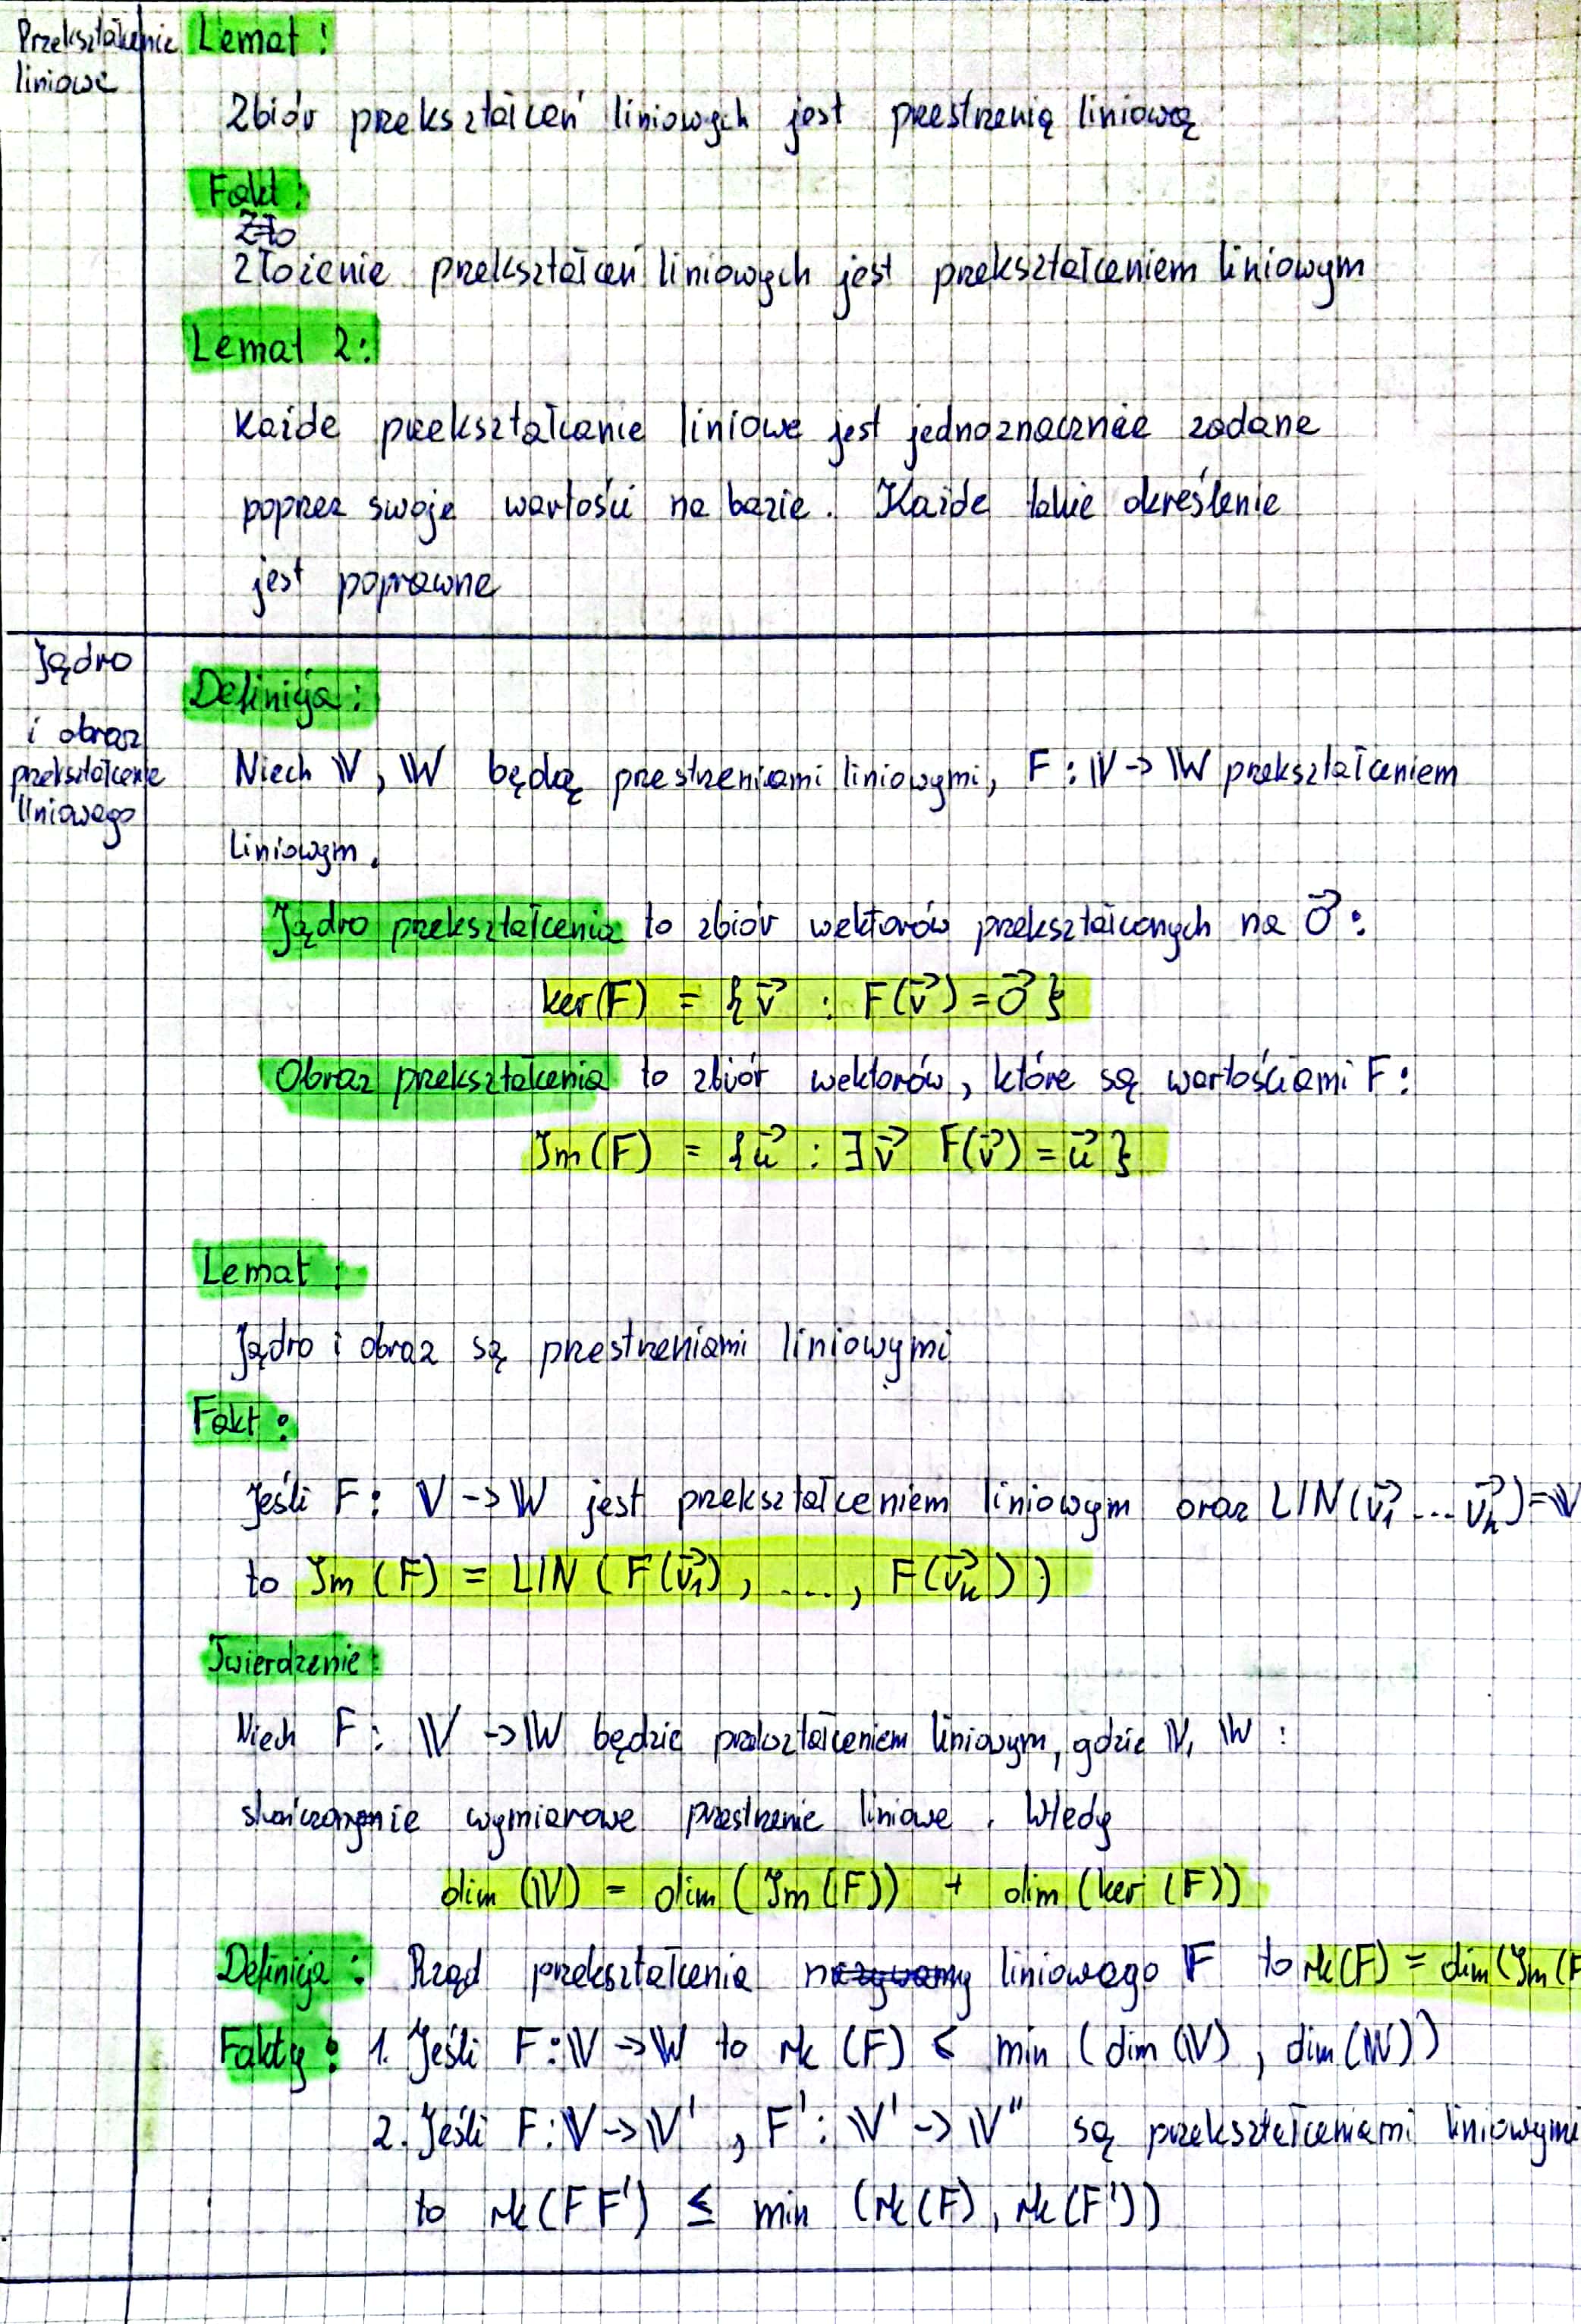 Przekształcenie
liniowe
Lemat :
Zbiór przekształceń liniowych jest przestrzenią liniową
Fakt :
Zło
Złożenie przekształceń liniowych jest przekształceniem liniowym
Lemat 2 :
Każde przekształcenie liniowe jest jednoznacznie zadane
poprzez swoje wartości na bazie. Każde takie określenie
jest poprawne
Jądro
i obraz
przekształcenie
liniowego
Definicja :
Niech 𝕍, 𝕎 będą przestrzeniami liniowymi, F : 𝕍 -> 𝕎 przekształceniem
liniowym.
Jądro przekształcenia to zbiór wektorów przekształconych na 0⃗ :
ker(F) = { v⃗ : F(v⃗) = 0⃗ }
Obraz przekształcenia to zbiór wektorów, które są wartościami F :
Im(F) = { u⃗ : ∃ v⃗ F(v⃗) = u⃗ }
Lemat :
Jądro i obraz są przestrzeniami liniowymi
Fakt :
Jeśli F : 𝕍 -> 𝕎 jest przekształceniem liniowym oraz LIN(v⃗₁ ... v⃗ₙ) = 𝕍
to Im (F) = LIN ( F(v⃗₁), ..., F(v⃗ₙ) )
Twierdzenie :
Niech F : 𝕍 -> 𝕎 będzie przekształceniem liniowym, gdzie 𝕍, 𝕎 :
skończenie wymiarowe przestrzenie liniowe. Wtedy
dim (𝕍) = dim ( Im (F)) + dim (ker (F))
Definicja : Rząd przekształcenia nazywamy liniowego F to rk(F) = dim(Im(F
Fakty : 1. Jeśli F : 𝕍 -> 𝕎 to rk (F) ≤ min (dim (𝕍), dim (𝕎))
2. Jeśli F : 𝕍 -> 𝕍' , F' : 𝕍' -> 𝕍'' są przekształceniami liniowymi
to rk(FF') ≤ min (rk(F), rk(F'))